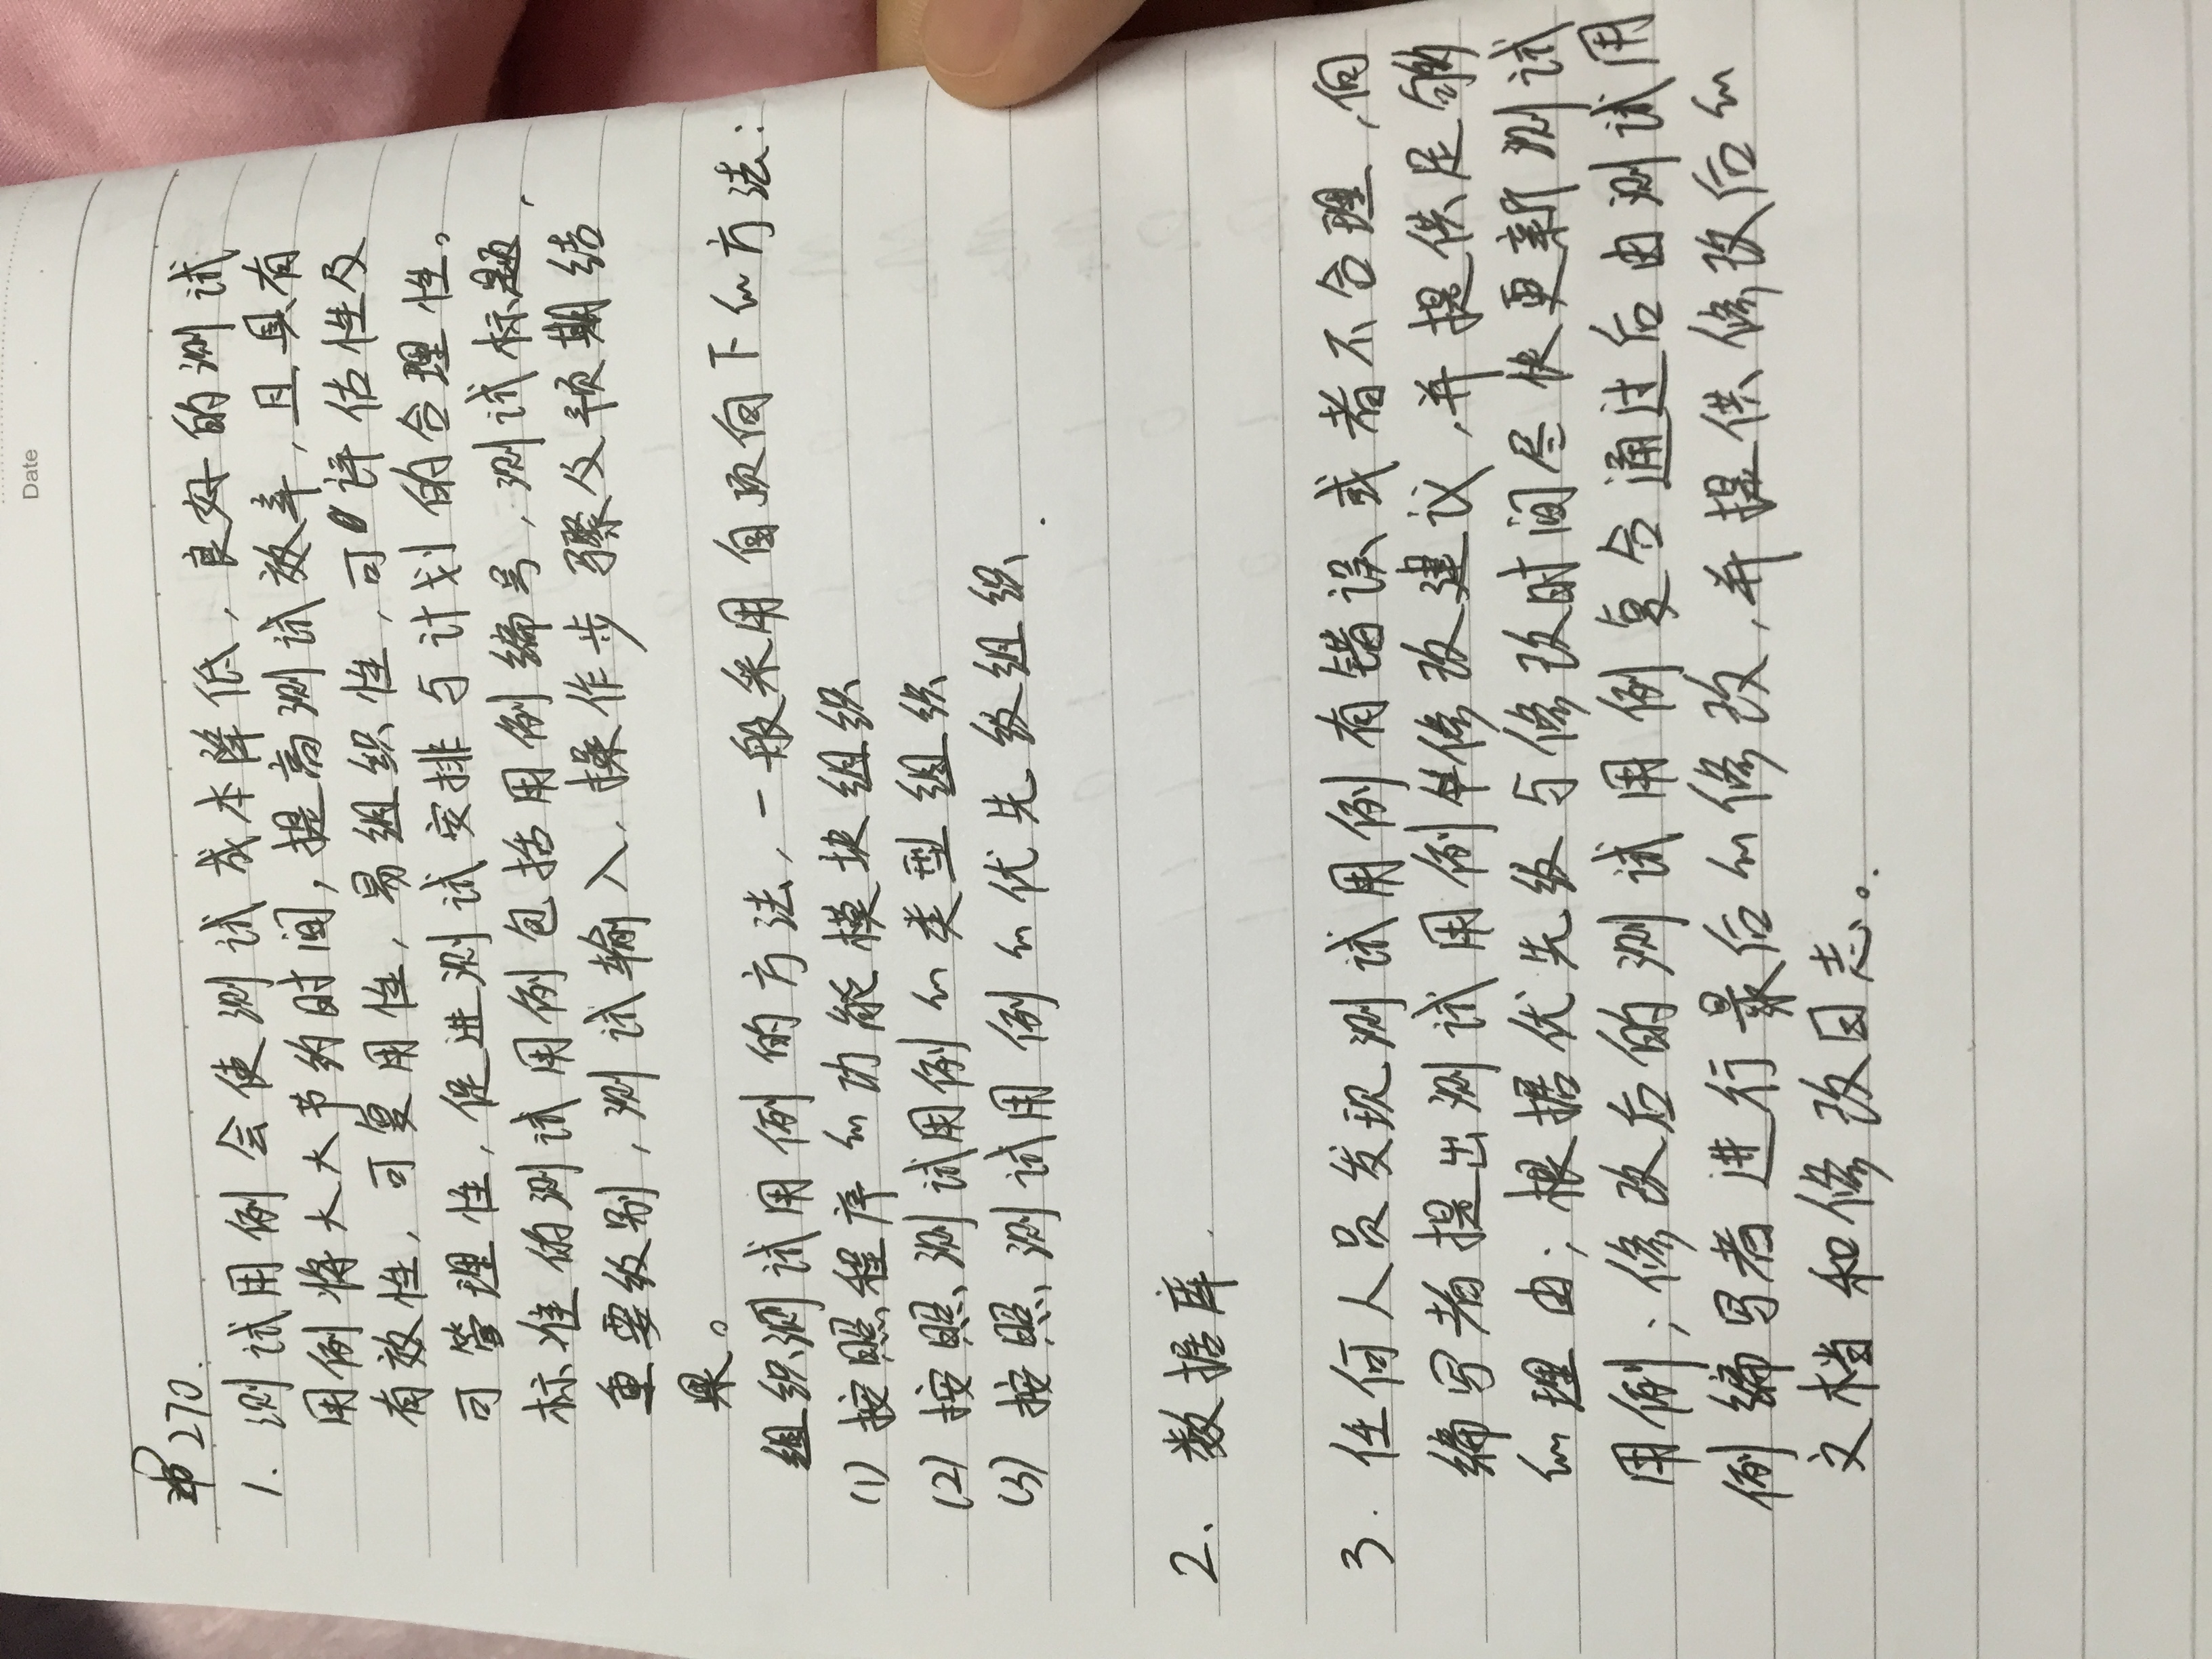 Date
P270.
1. 测试用例会使测试成本降低, 良好的测试
用例将大大节约时间, 提高测试效率, 且具有
有效性, 可复用性, 易组织性, 可评估性及
可管理性, 促进测试安排与计划的合理性。
标准的测试用例包括用例编号, 测试标题,
重要级别, 测试输入, 操作步骤及预期结
果。
组织测试用例的方法, 一般采用自顶向下的方法:
(1) 按照程序的功能模块组织
(2) 按照测试用例的类型组织
(3) 按照测试用例的优先级组织.
2. 数据库.
3. 任何人员发现测试用例有错误或者不合理, 向
编写者提出测试用例修改建议, 并提供足够
的理由; 根据优先级与修改时间尽快更新测试
用例; 修改后的测试用例复合通过后由测试用
例编写者进行最后的修改, 并提供修改后的
文档和修改日志。